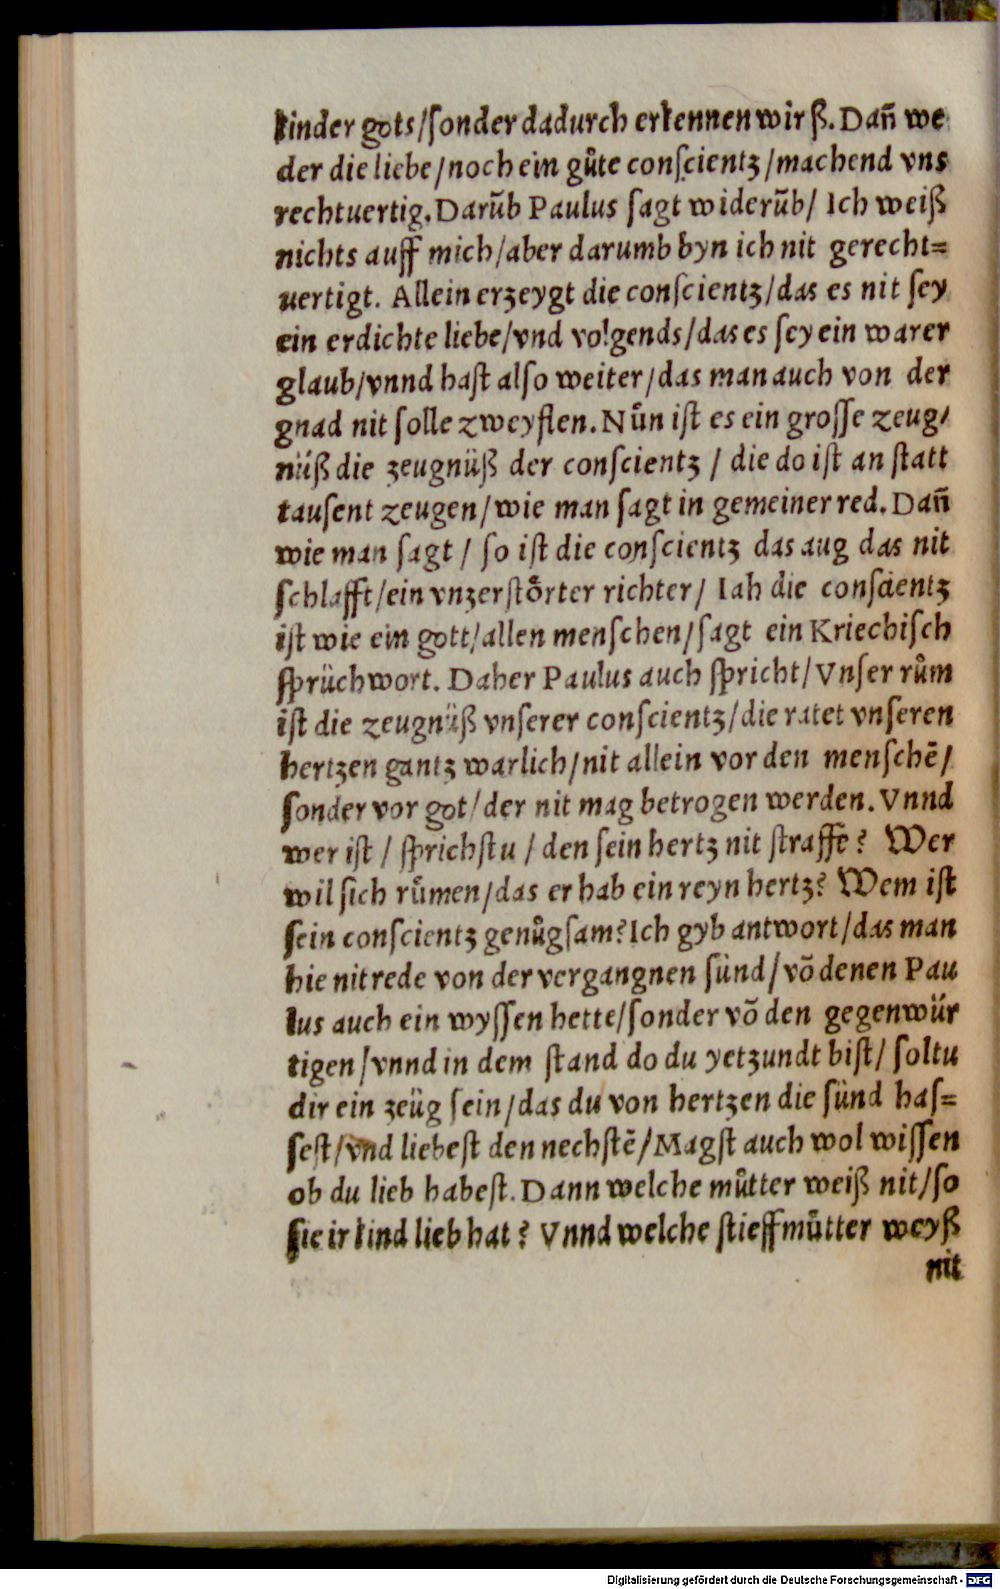 kinder gots/ſonder dadurch erkennen wir ß. Dañ we
der die liebe/noch ein gůte conſcientz/machend vns
rechtuertig. Darũb Paulus ſagt widerũb/ Ich weiß
nichts auff mich/aber darumb byn ich nit gerecht⸗
uertigt. Allein erzeygt die conſcientz/das es nit ſey
ein erdichte liebe/vnd volgends/das es ſey ein warer
glaub/vnnd haſt alſo weiter/das man auch von der
gnad nit ſolle zweyflen. Nůn iſt es ein groſſe zeug/
nüß die zeugnüß der conſcientz / die do iſt an ſtatt
tauſent zeugen/wie man ſagt in gemeiner red. Dañ
wie man ſagt / ſo iſt die conſcientz das aug das nit
ſchlafft/ein vnzerſtoͤrter richter/ Iah die conſcientz
iſt wie ein gott/allen menſchen/ſagt ein Kriechiſch
ſprüchwort. Daher Paulus auch ſpricht/Vnſer rům
iſt die zeugnüß vnſerer conſcientz/die ratet vnſeren
hertzen gantz warlich/nit allein vor den menſchẽ/
ſonder vor got/der nit mag betrogen werden. Vnnd
wer iſt / ſprichſtu / den ſein hertz nit ſtraffe? Wer
wil ſich růmen/das er hab ein reyn hertz? Wem iſt
ſein conſcientz genůgſam? Ich gyb antwort/das man
hie nit rede von der vergangnen ſünd/võ denen Pau
lus auch ein wyſſen hette/ſonder võ den gegenwür
tigen/vnnd in dem ſtand do du yetzundt biſt/ ſoltu
dir ein zeüg ſein/das du von hertzen die ſünd haſ⸗
ſeſt/vnd liebeſt den nechſtẽ/Magſt auch wol wiſſen
ob du lieb habeſt. Dann welche můtter weiß nit/ſo
ſie ir kind lieb hat? Vnnd welche ſtieffmůtter weyß
nit
Digitalisierung gefördert durch die Deutsche Forschungsgemeinschaft - DFG